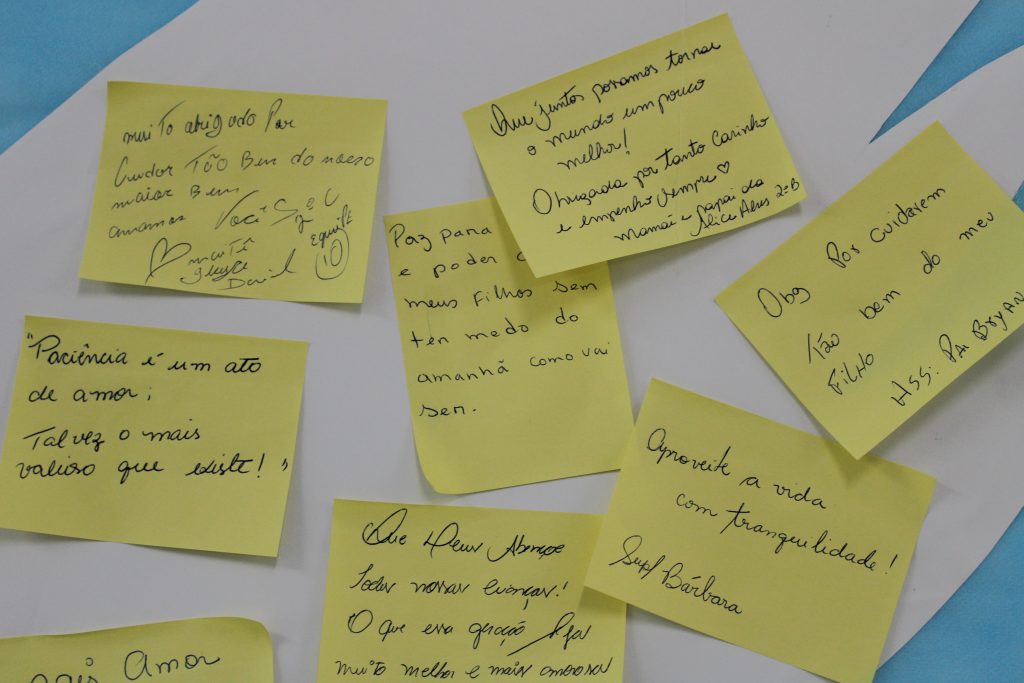 muito obrigado Por
Cuidar TÃO Bem do nosso
maior Bem
amamos Você
equipE
10
Daniel
Que juntos possamos tornar
o mundo um pouco
melhor!
Obrigada por tanto carinho
e empenho sempre ♡
Mamãe e papai da
Alice Alves 2º B
Paz para
e poder
meus filhos sem
ter medo do
amanhã como vai
ser.
Obg Por cuidarem
Tão bem do meu
FILHO
ASS: PAI BRYAN
"Paciência é um ato
de amor;
Talvez o mais
valioso que existe!"
Aproveite a vida
com tranquilidade!
Bárbara
Que Deus Abençoe
todas nossas crianças!
O que essa geração
muito melhor e mais amorosa
Amor